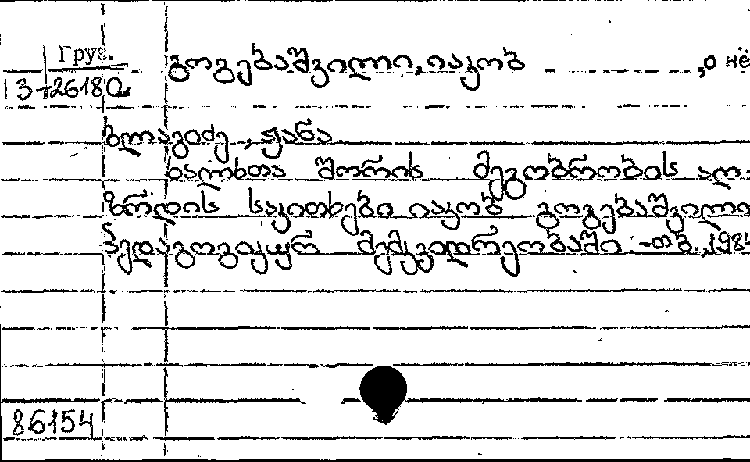 Груз.
3-26180
გოგებაშვილი, იაკობ ,о нё
გლაგიძე, ჟანა
ხალხთა შორის მეგობრობის აღ-
ზრდის საკითხები იაკობ გოგებაშვილი
პედაგოგიკურ მემკვიდრეობაში.-თბ., 198
86154